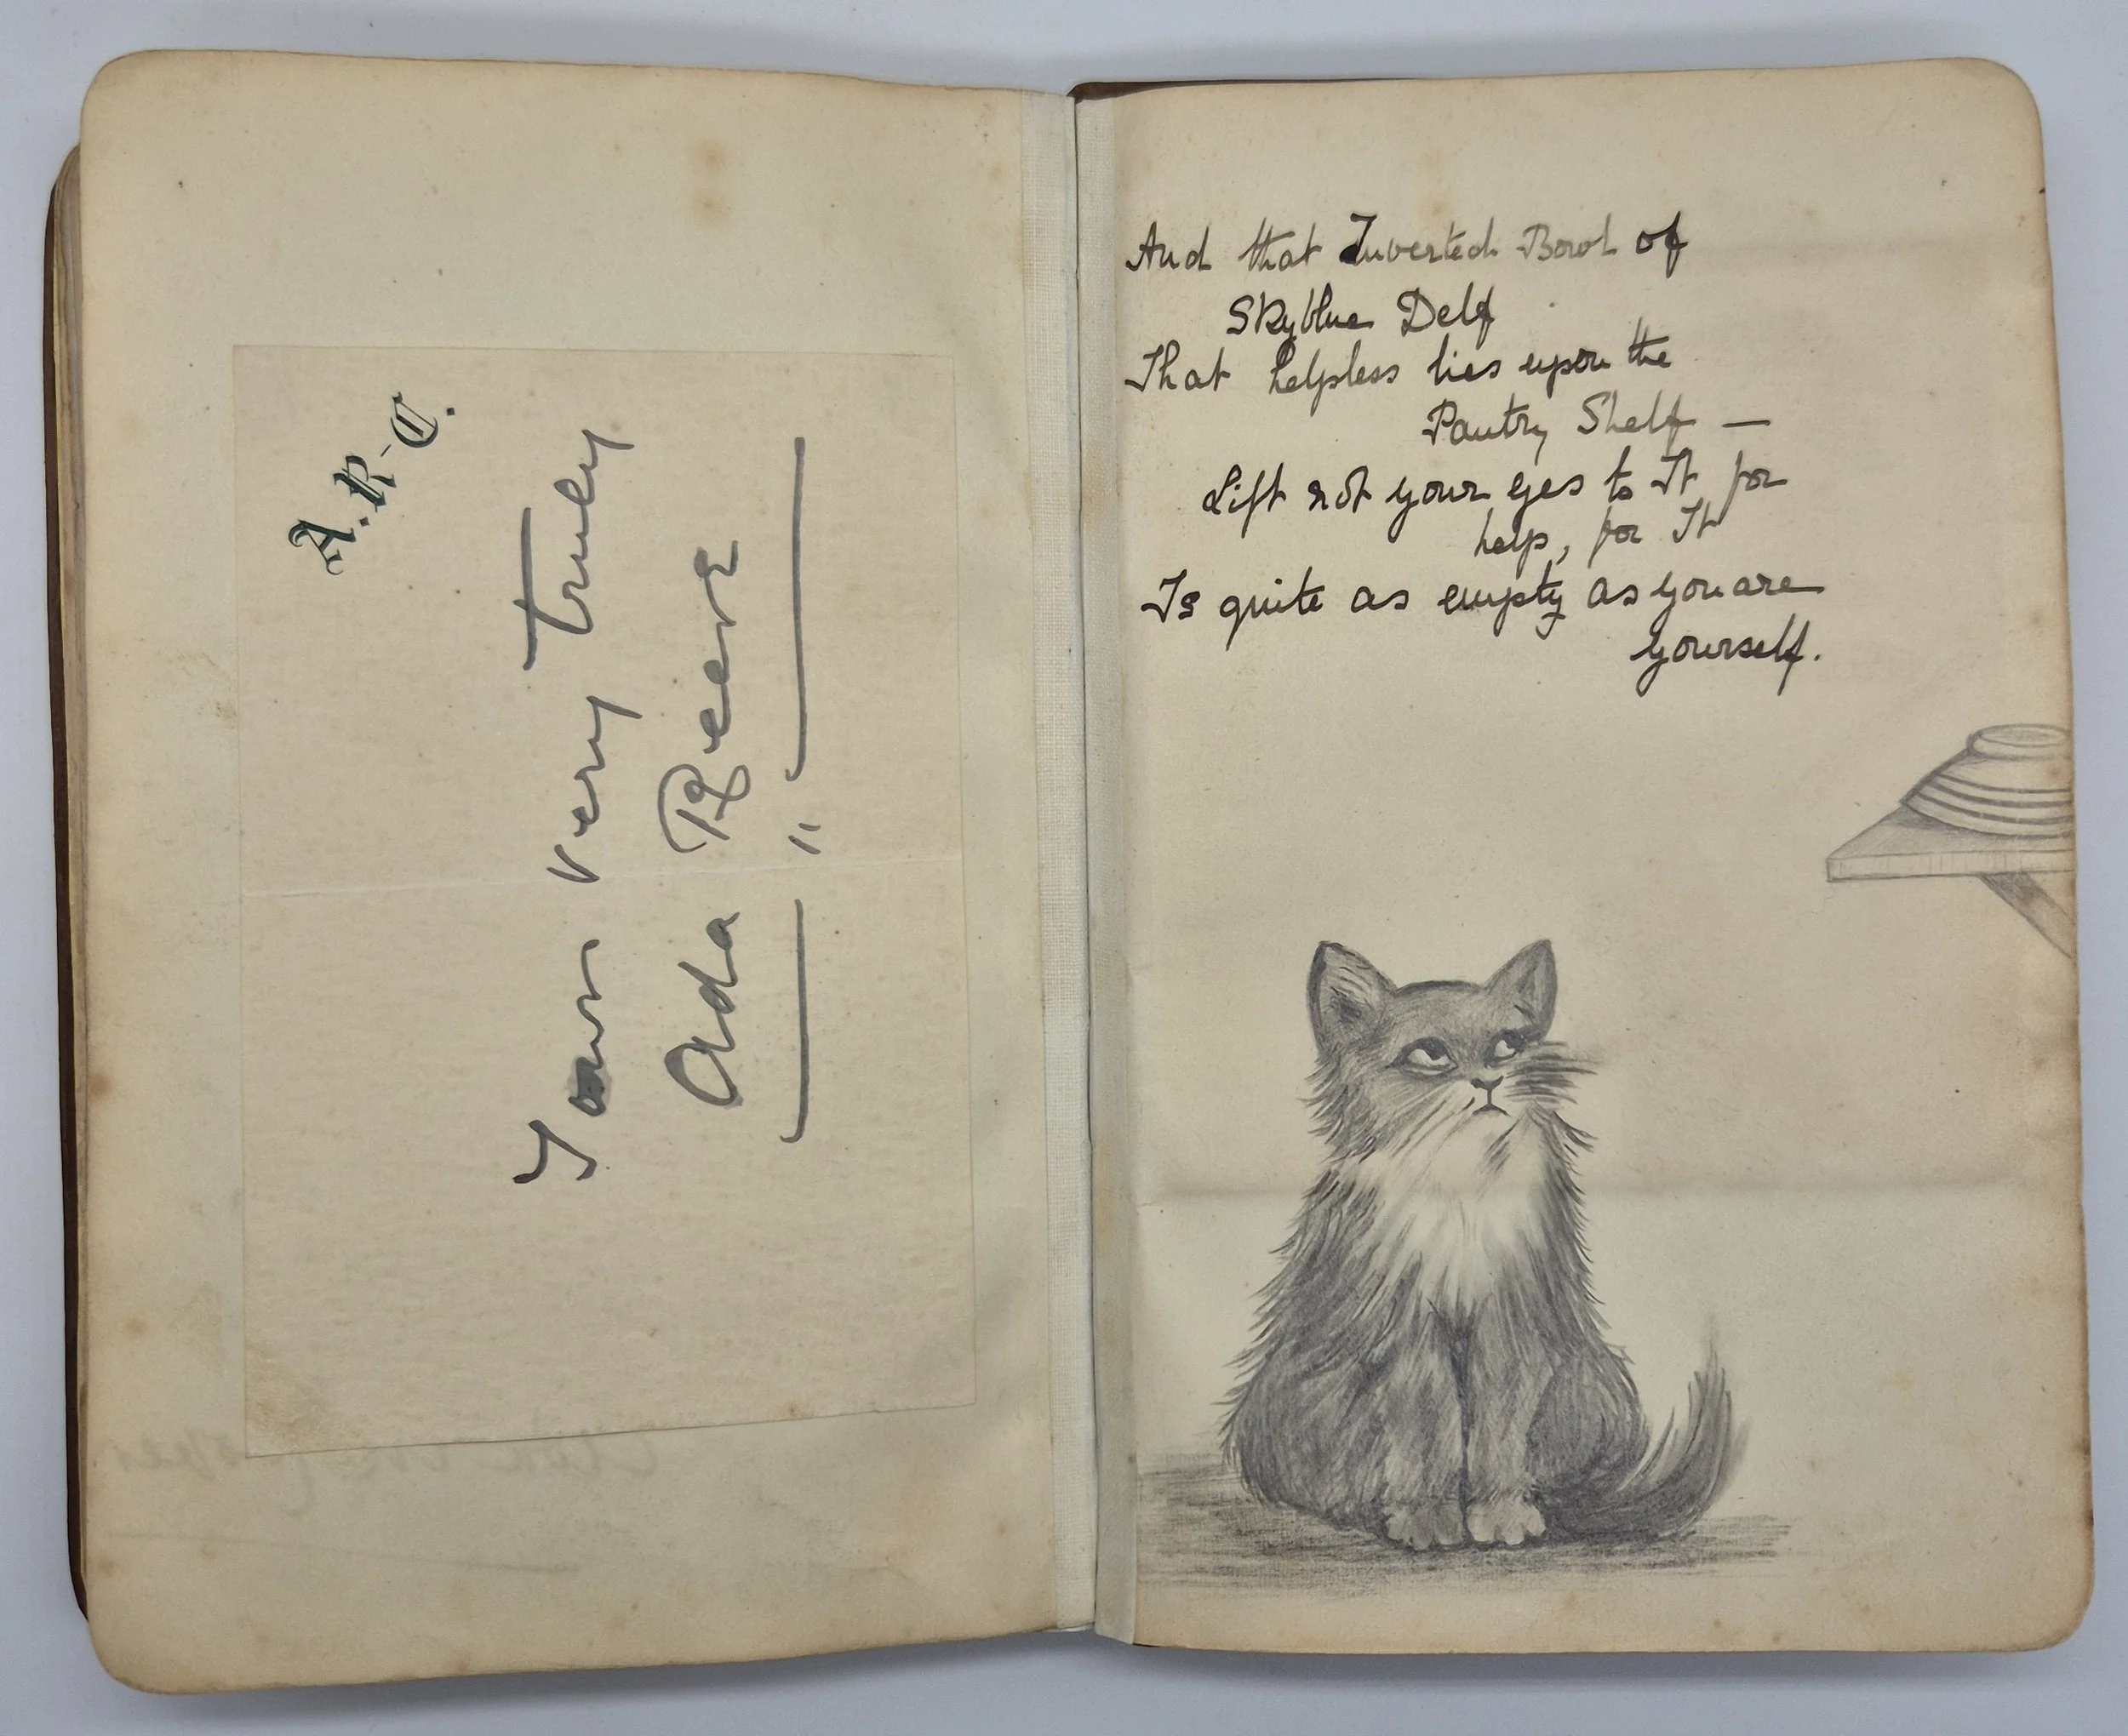 A.R-C.
Yours very truly
Ada Reeve
And that Inverted Bowl of
Skyblue Delf
That helpless lies upon the
Pantry Shelf —
Lift not your eyes to It for
help, for It
Is quite as empty as you are
yourself.